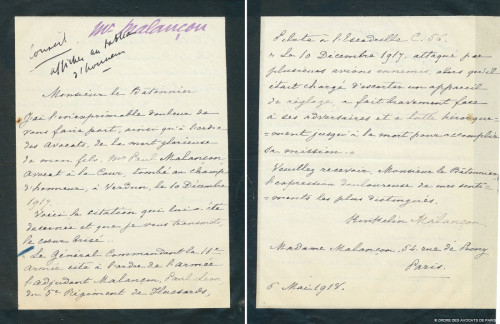 Mᵉ Malançon
Conseil
afficher au tableau
d'honneur
Monsieur le Bâtonnier
J'ai l'inexprimable douleur de
vous faire part, ainsi qu'à l'ordre
des Avocats, de la mort glorieuse
de mon fils, Mᵉ Paul Malançon
Avocat à la Cour, tombé au champ
d'honneur, à Verdun, le 10 Décembre
1917.
Voici la citation qui lui a été
décernée et que je vous transmets,
le cœur brisé...
"Le Général Commandant la IIᵉ
Armée cite à l'ordre de l'armée
l'adjudant Malançon, Paul Léon
du 5ᵉ Régiment de Hussards,
Pilote à l'Escadrille C. 56.
"Le 10 Décembre 1917, attaqué par
plusieurs avions ennemis, alors qu'il
était chargé d'escorter un appareil
de réglage, a fait bravement face
à ses adversaires et a lutté héroïque-
ment jusqu'à la mort pour accomplir
sa mission."
Veuillez recevoir, Monsieur le Bâtonnier
l'expression douloureuse de mes senti-
ments les plus distingués.
Malançon
Madame Malançon, 54 rue de
Paris.
6 Mai 1918.
© ORDRE DES AVOCATS DE PARIS